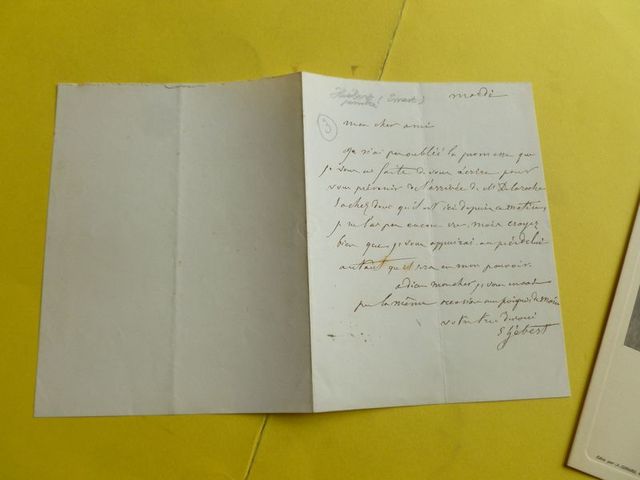 Hébert (Ernest)
peintre
mardi
3
mon cher ami
Je n'ai pas oublié la promesse que
je vous ai faite de vous écrire pour
vous prévenir de l'arrivée de Mr Delaroche
Sachez donc qu'il est ici depuis ce matin
je ne l'ai pas encore vu, mais croyez
bien que je vous appuirai auprès de lui
autant qu'il sera en mon pouvoir.
adieu mon cher je vous envoie
par la même occasion une poignée de main
votre tout dévoué
E Hébert